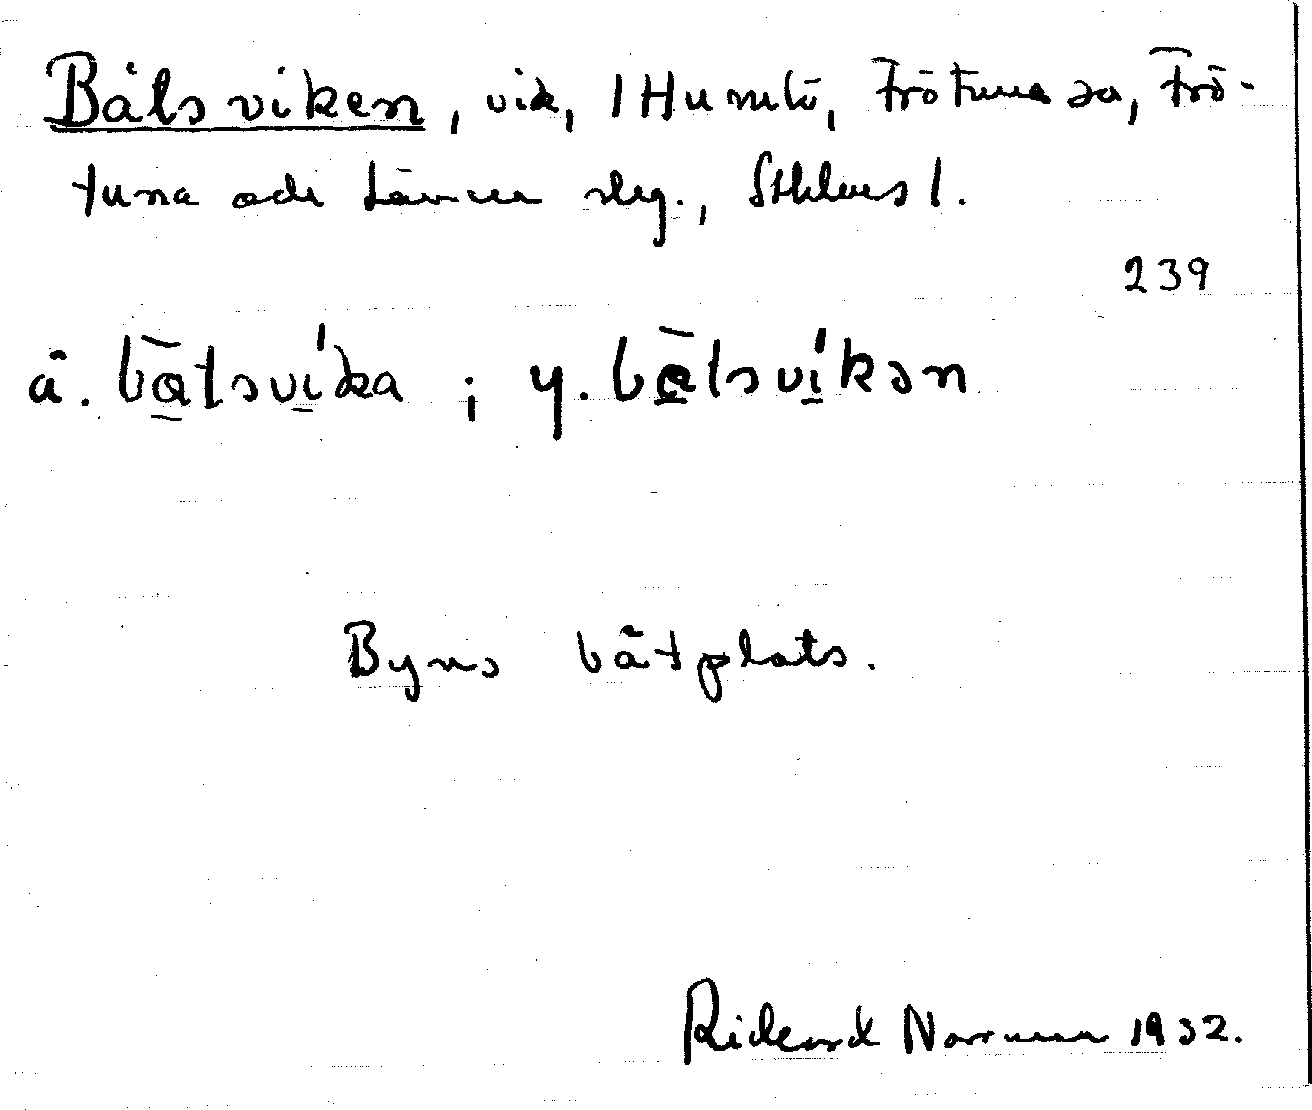 Båtsviken, vik, 1 Humlö, Frötuna sn, Frö-
tuna och Länna slg., Sthlms l.
239
ä. båtsvika ; y. båtsvikən
Byns båtplats.
Rickard Norrman 1932.